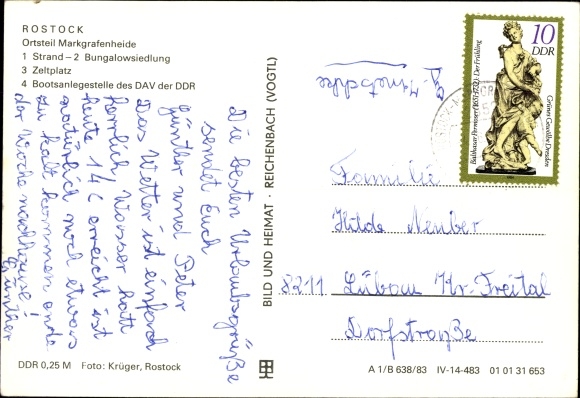 ROSTOCK
Ortsteil Markgrafenheide
1 Strand – 2 Bungalowsiedlung
3 Zeltplatz
4 Bootsanlegestelle des DAV der DDR
Die besten Urlaubsgrüße
sendet Euch
Günther und Peter
Das Wetter ist einfach
herrlich, Wasser hatt
heute 14°C erreicht ist
natürlich noch etwas
zu kalt kommen ende
der Woche nachhause!
Günther
DDR 0,25 M Foto: Krüger, Rostock
BILD UND HEIMAT · REICHENBACH (VOGTL)
10
DDR
Balthasar Permoser (1651-1732): Der Frühling
Grünes Gewölbe Dresden
Familie
Hilde Neuber
8211 Lübau Kr. Freital
Dorfstraße
A 1/B 638/83 IV-14-483 01 01 31 653